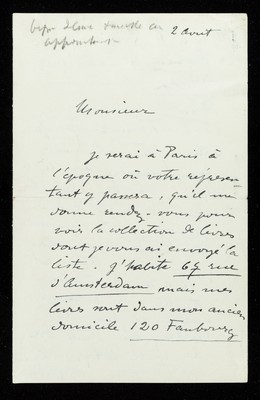 2 Aout
Monsieur
je serai à Paris à
l'époque où votre représen-
tant y passera, qu'il me
donne rendez-vous pour
voir la collection de livres
dont je vous ai envoyé la
liste. J'habite 65 rue
d'Amsterdam mais mes
livres sont dans mon ancien
domicile 120 Faubourg